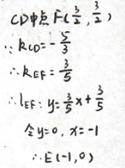 CD中点 F(3/2, 3/2)
∵ k_CD = -5/3
∴ k_EF = 3/5
∴ l_EF: y = 3/5 x + 3/5
令 y=0, x=-1
∴ E(-1,0)